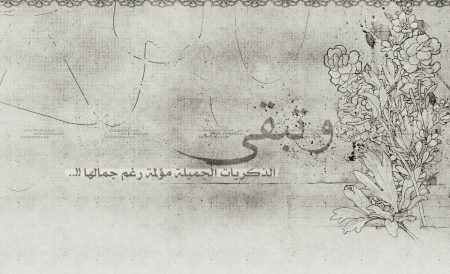 وتبقى
الذكريات الجميلة مؤلمة رغم جمالها !!..